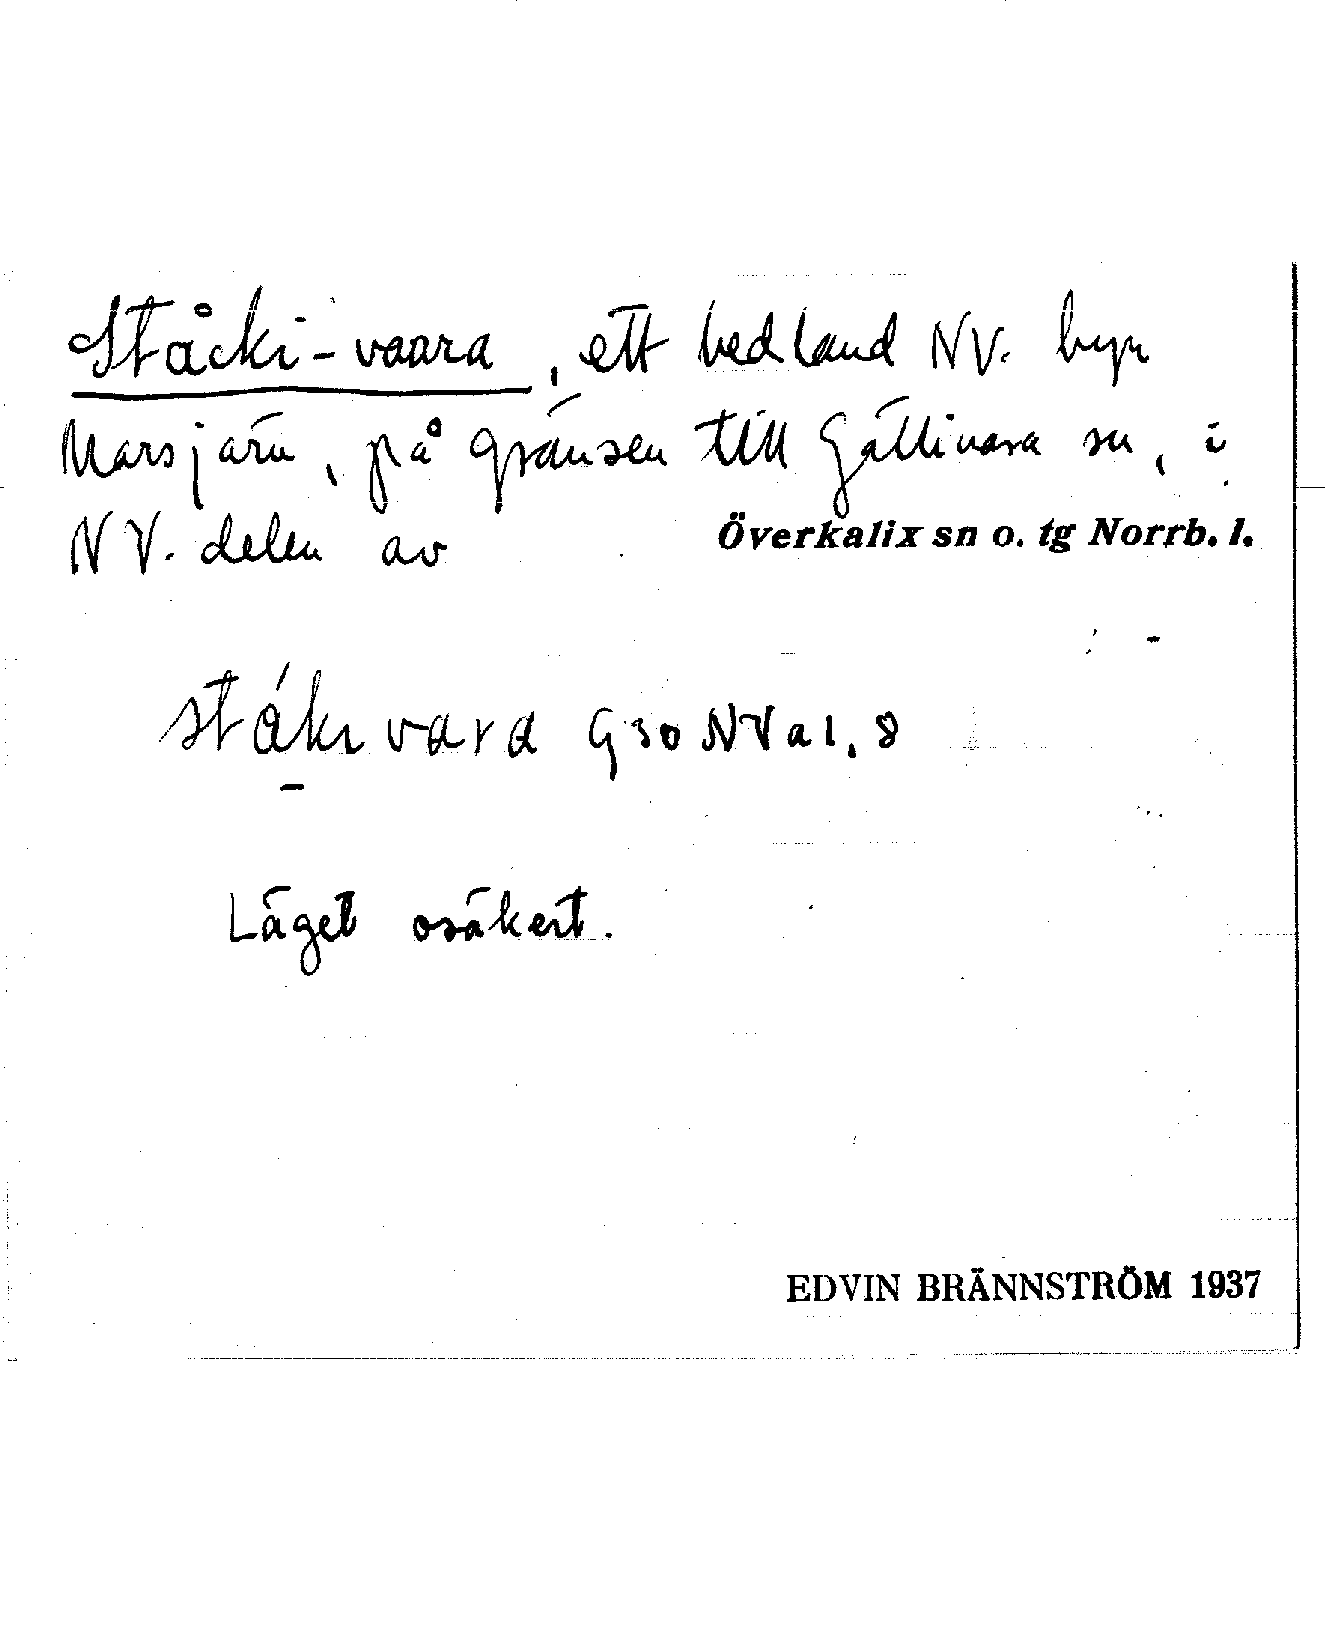 Ståcki-vaara, ett hedland NV. byn
Marsjärv, på gränsen till Gällivara sn, i
NV. delen av Överkalix sn o. tg Norrb. l.
ståkı vara G30NVa1,8
Läget osäkert.
EDVIN BRÄNNSTRÖM 1937